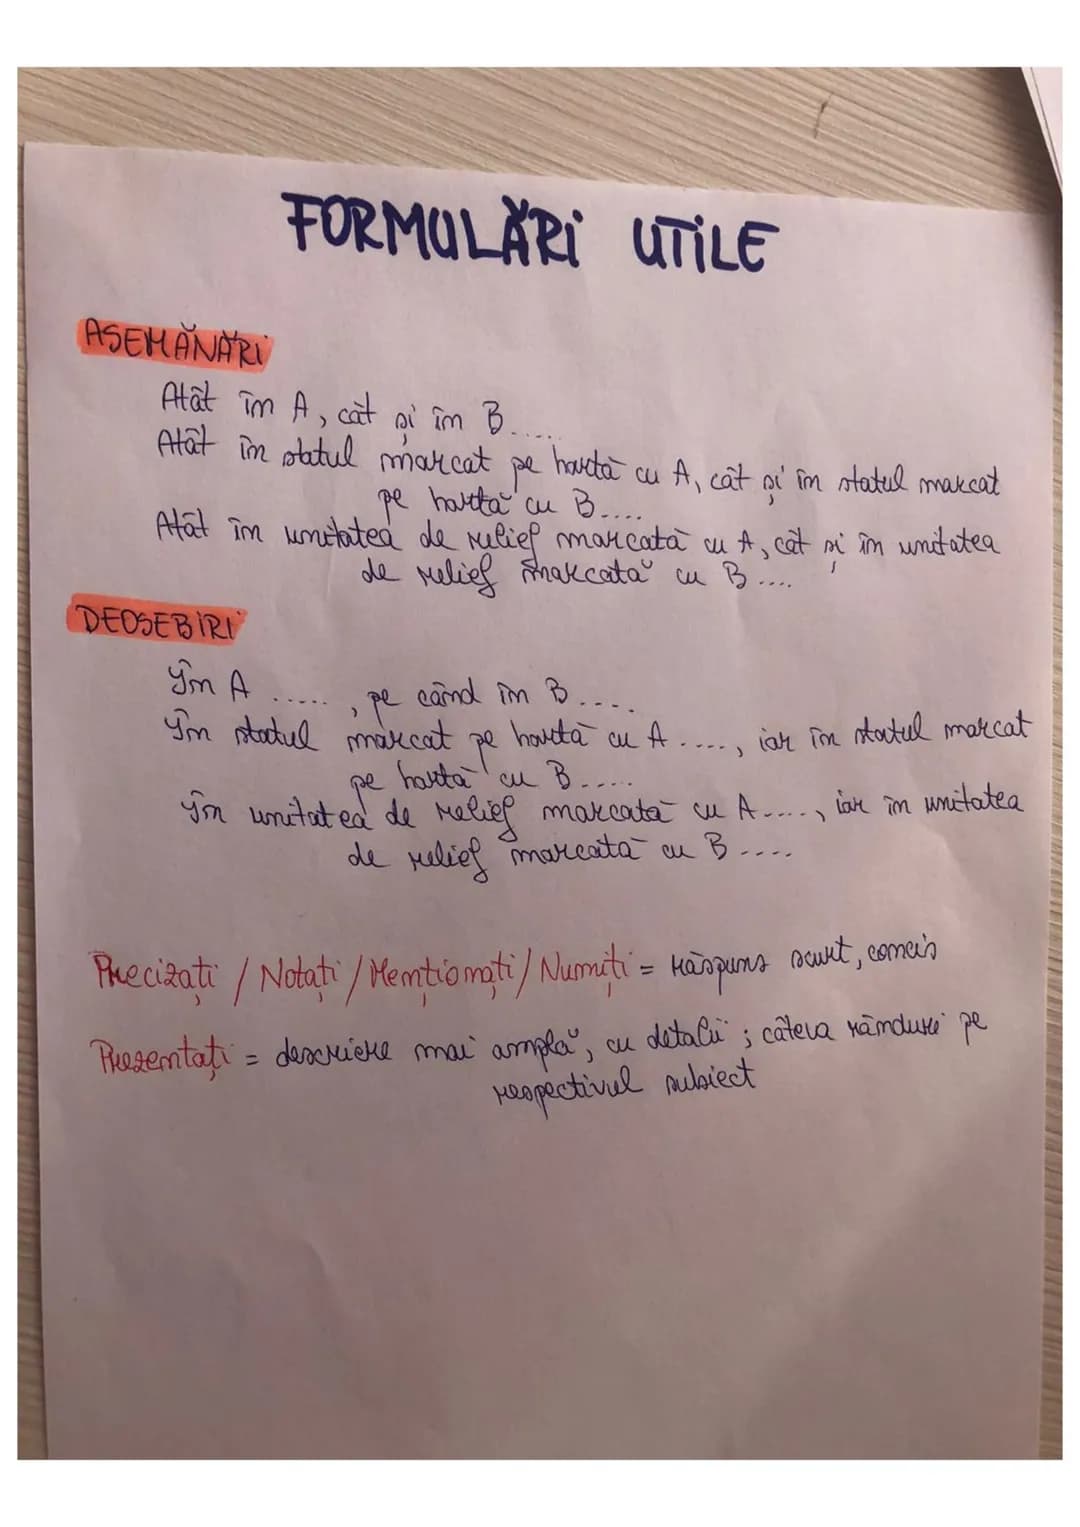 FORMULĂRI UTILE
ASEMĂNĂRI
Atât în A, cât și în B.....
Atât în statul marcat pe hartă cu A, cât și în statul marcat
pe hartă cu B....
Atât în unitatea de relief marcată cu A, cât și în unitatea
de relief marcată cu B....
DEOSEBIRI
În A ....., pe când în B....
În statul marcat pe hartă cu A ...., iar în statul marcat
pe hartă cu B.....
În unitatea de relief marcată cu A....., iar în unitatea
de relief marcată cu B....
Precizați / Notați / Menționați / Numiți = răspuns scurt, concis
Prezentați = descriere mai amplă, cu detalii ; câteva rânduri pe
respectivul subiect